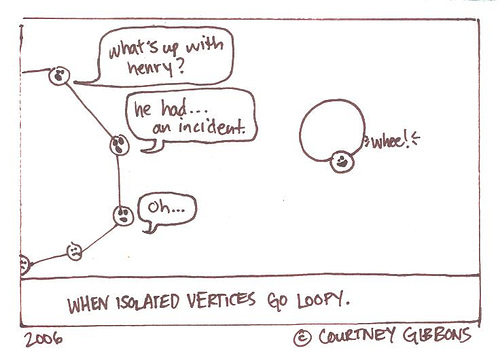 what's up with
henry?
he had...
an incident.
oh...
whee!
WHEN ISOLATED VERTICES GO LOOPY.
2006
© COURTNEY GIBBONS